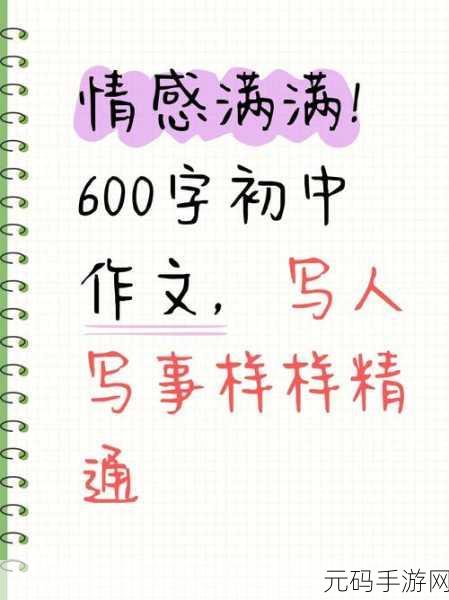 情感满满!
600字初中
作文，写人
写事样样精
通
元码手游网